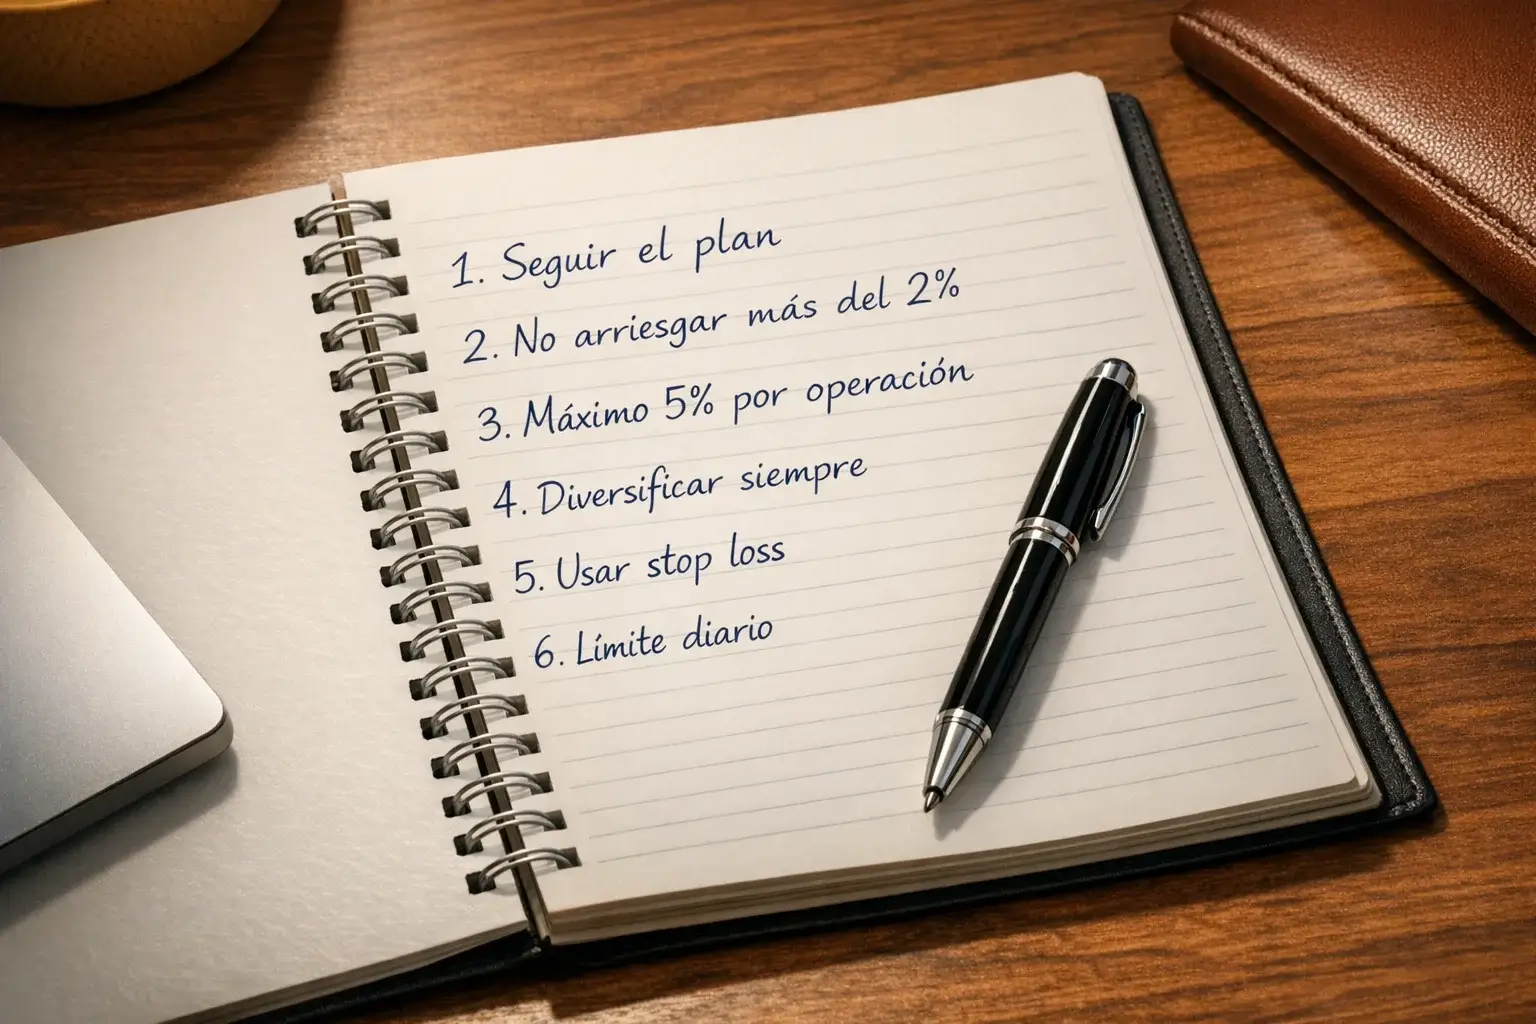 1. Seguir el plan
2. No arriesgar más del 2%
3. Máximo 5% por operación
4. Diversificar siempre
5. Usar stop loss
6. Límite diario